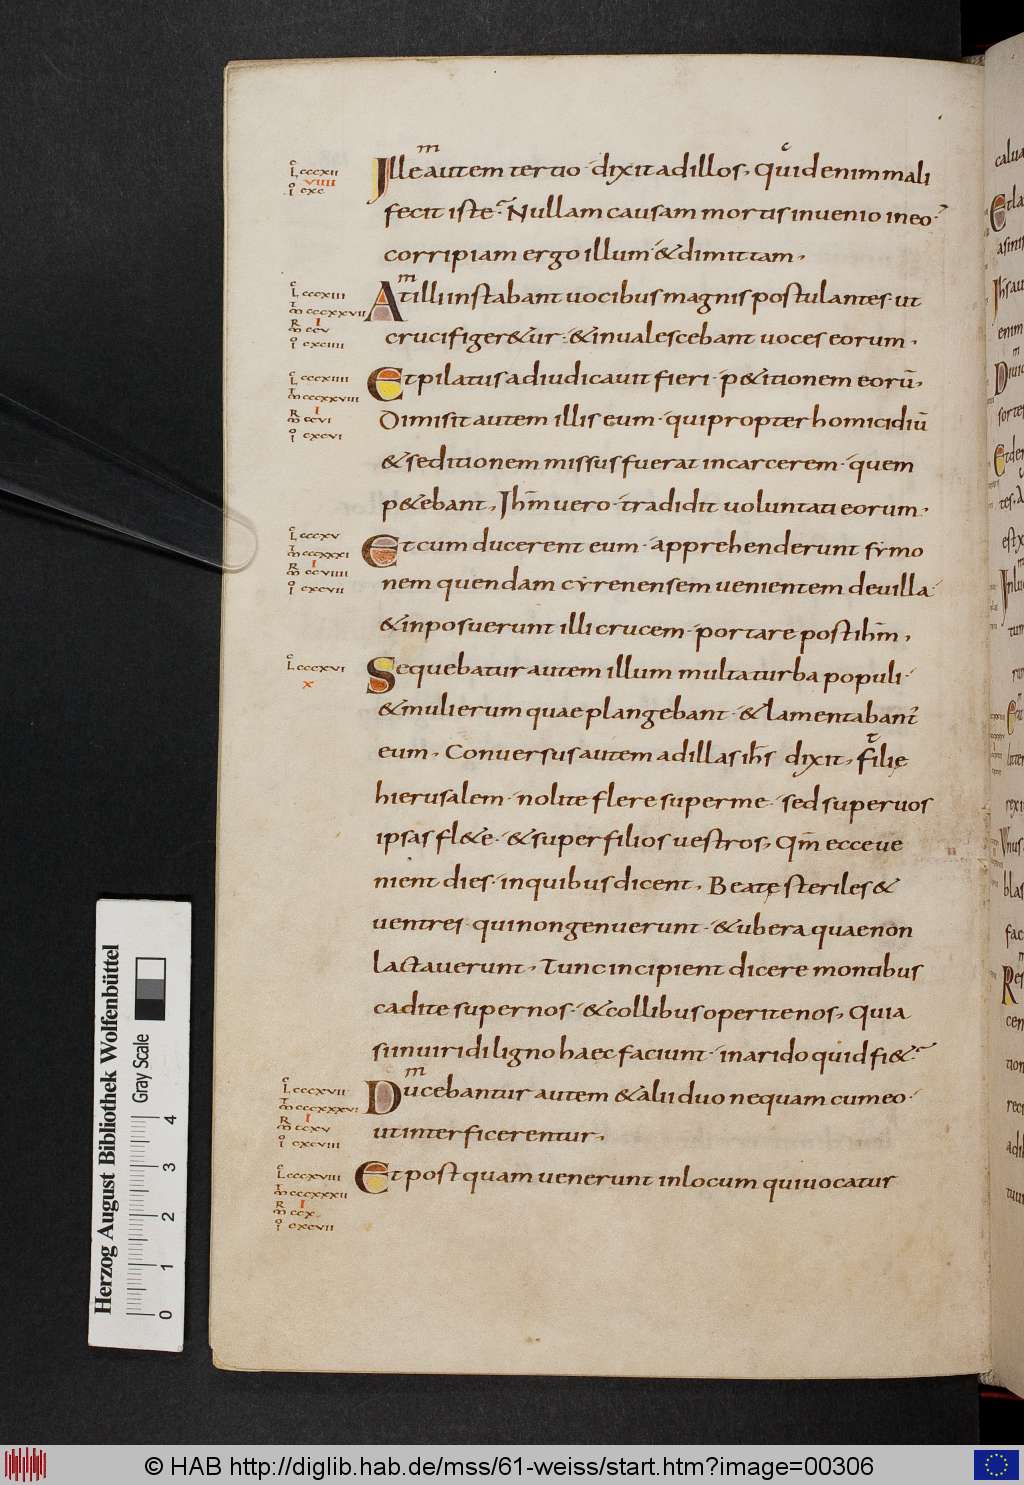 Ille autem tertio · dixit ad illos, Quid enim mali
fecit iste? Nullam causam mortis invenio in eo·
corripiam ergo illum· & dimittam,
At illi instabant uocibus magnis postulantes· ut
crucifiger&ur· & inualescebant uoces eorum,
Et pilatus adiudicauit fieri· p&itionem eorū,
Dimisit autem illis eum· qui propter homicidiū
& seditionem missus fuerat in carcerem· quem
p&ebant, Ihm̄ uero· tradidit uoluntati eorum,
Et cum ducerent eum· apprehenderunt symo
nem quendam cyrenensem uenientem de uilla·
& inposuerunt illi crucem· portare post ihm̄,
Sequebatur autem illum multa turba populi·
& mulierum quae plangebant· & lamentabant᷑
eum, Conuersus autem ad illas ihs̄ dixit, Filię
hierusalem· nolite flere super me· sed super uos
ipsas fl&e· & super filios uestros, Qm̄ ecce ue
nient dies· in quibus dicent, Beatę steriles &
uentres qui non genuerunt· & ubera quae non
lactauerunt, Tunc incipient dicere montibus
cadite super nos· & collibus operite nos, Quia
si in uiridi ligno haec faciunt· in arido quid fi&?
Ducebantur autem & alii duo nequam cum eo·
ut interficerentur,
Et postquam uenerunt in locum qui uocatur
L cccxii
viiii
cxc
L cccxiii
m cccxxvii
i
m ccv
cxciiii
L cccxiiii
m cccxxviii
i
m ccvi
cxcvi
L cccxv
m cccxxxi
i
m ccviiii
cxcvii
L cccxvi
x
L cccxvii
m cccxxxvi
i
m ccxv
cxcviii
L cccxviii
m cccxxxii
i
m ccx
cxcvii
Herzog August Bibliothek Wolfenbüttel
Gray Scale
0 1 2 3 4
© HAB http://diglib.hab.de/mss/61-weiss/start.htm?image=00306